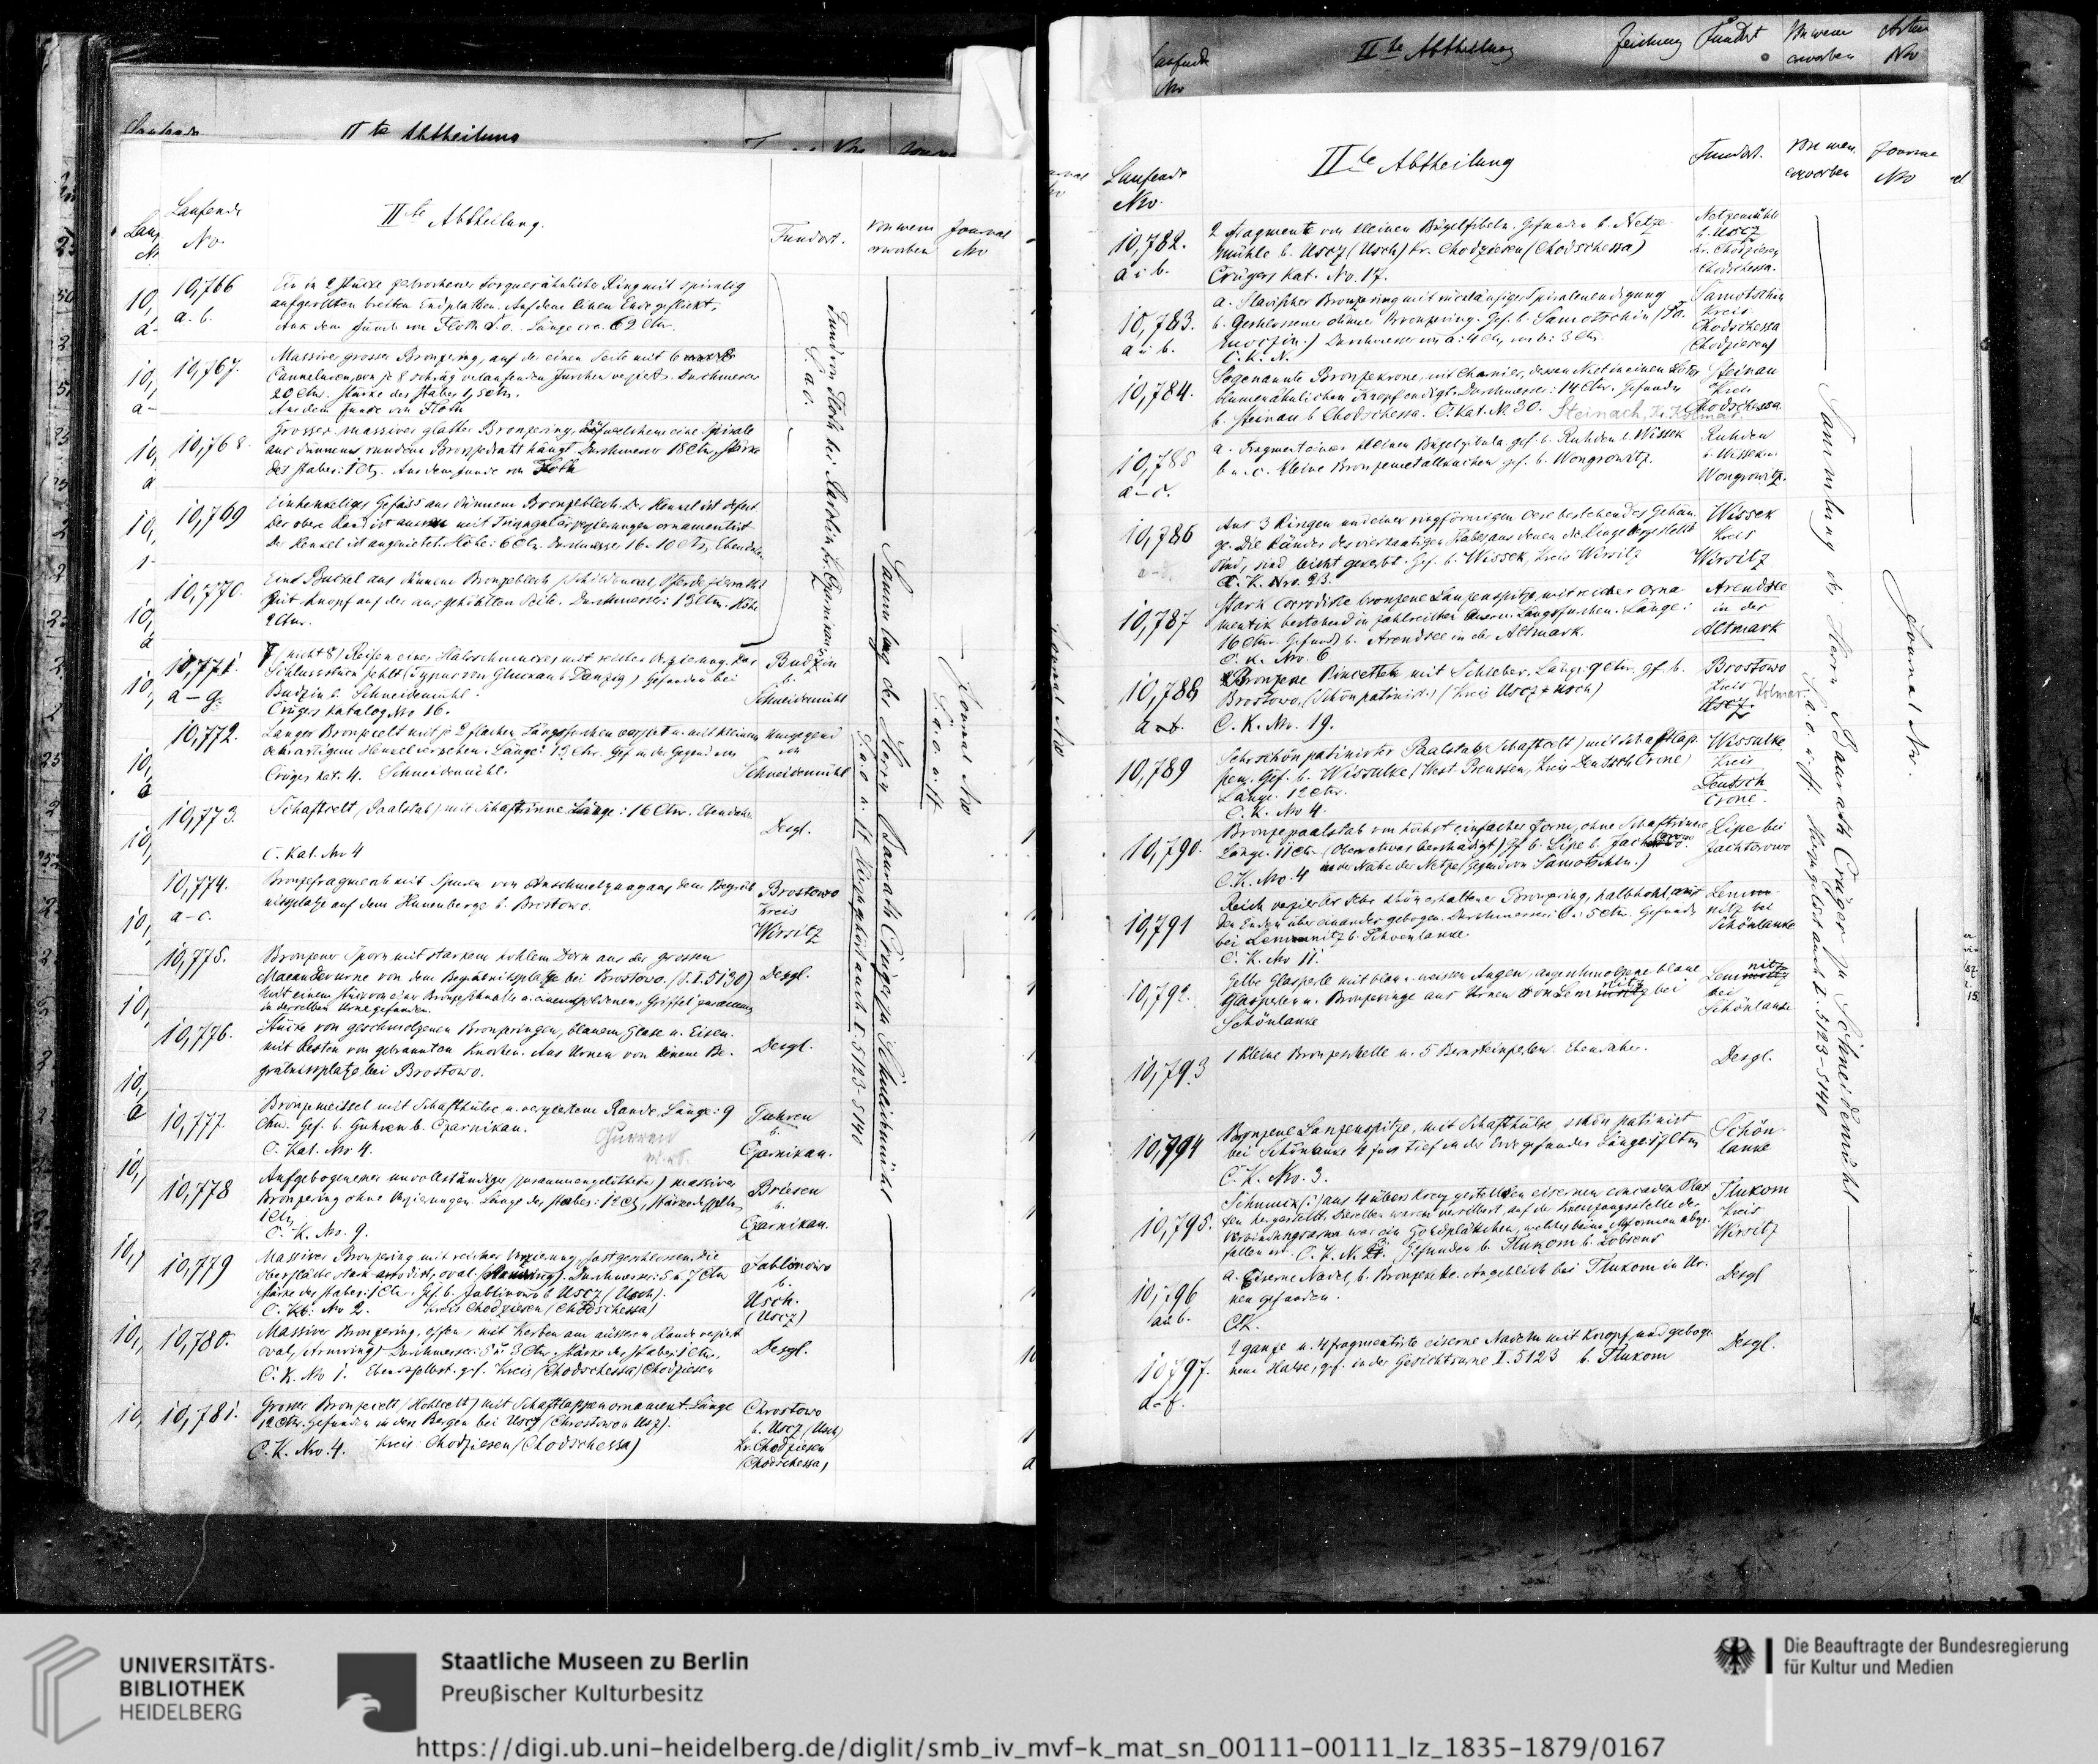 Laufende
No.
IIte Abtheilung.
Fundort.
Von wem
erworben
Journal
No
10,766
a. b.
Ein in 2 Stücke gebrochener Torquesähnlicher Ring mit spiralig
aufgerollten breiten Endplatten. Auf dem einen Ende geflickt.
Aus dem Funde von Floth s. o. Länge ca. 69 Ctm.
10,767.
Massiver grosser Bronzering, auf der einen Seite mit 6
Canneluren, von je 8 schräg verlaufenden Furchen verziert. Durchmesser
20 Ctm. Stärke des Stabes 1,5 Ctm.
Aus dem Funde von Floth
10,768.
Grosser massiver glatter Bronzering, an welchem eine Spirale
aus dünnem rundem Bronzedraht hängt. Durchmesser 18 Ctm, Stärke
des Stabes: 1 Ctm. Aus dem Funde von Floth
10,769
Einhenkeliges Gefäss aus dünnem Bronzeblech. Der Henkel ist defect.
Der obere Rand ist aussen mit Triangulärverzierungen ornamentirt.
Der Henkel ist angenietet. Höhe: 6 Ctm. Durchmesser 16. 10 Ctm, Ebendaher
10,770.
Eine Buckel aus dünnem Bronzeblech (Schildbuckel, Pferdezierath?)
mit Knopf auf der ausgehöhlten Seite. Durchmesser: 13 Ctm. Höhe
2 Ctm.
Fund von Floth bei Zarolin Kr. Czarnikau.
S. a. o.
10,771.
a – g.
7 (nicht 8) Reifen eines Halsschmuckes mit reicher Verzierung. Das
Schlussstück fehlt (Typus von Gluckau b Danzig) Gefunden bei
Budzin b. Schneidemühl.
Crüger Katalog No 16.
Budzin
b.
Schneidemühl
10,772.
Langer Bronzecelt mit je 2 flachen Längsfurchen verziert u. mit kleinem
öhrartigem Henkel versehen. Länge: 13 Ctm. Gef in der Gegend von
Crüger Kat. 4. Schneidemühl.
Umgegend
von
Schneidemühl
10,773.
Schaftcelt (Paalstab) mit Schaftrinne Länge: 16 Ctm. Ebendaher
C. Kat. No 4
Desgl.
10,774.
a – c.
Bronzefragmente mit Spuren von Anschmelzung aus dem Begräb-
nissplatze auf dem Hünenberge b. Brostowo.
Brostowo
Kreis
Wirsitz
10,775.
Bronzener Sporn mit starkem hohlem Dorn aus der grossen
Maeanderurne von dem Begräbnissplatze bei Brostowo. (S. I. 5130)
in derselben Urne gefunden.
Desgl.
10,776.
Stücke von geschmolzenen Bronzeringen, blauem Glase u. Eisen.
mit Resten von gebrannten Knochen. Aus Urnen von einem Be-
gräbnissplatze bei Brostowo.
Desgl.
10,777.
Bronzemeissel mit Schafthülse u. verziertem Rande. Länge: 9
Ctm. Gef. b. Guhren b. Czarnikau.
C. Kat. No 4.
Guhren
b.
Czarnikau.
10,778
Aufgebogener unvollständiger (zusammengelötheter) massiver
Bronzering ohne Verzierungen. Länge des Stabes: 12 Ctm, Stärke desselben
1 Ctm
C. K. No. 9.
Briesen
b.
Czarnikau.
10,779
Massiver Bronzering mit reicher Verzierung, fast geschlossen. Die
Oberfläche stark corrodirt, oval. (Armring). Durchmesser: 5 u. 7 Ctm
Stärke des Stabes: 1 Ctm. Gef. b. Jablonowo b Uscz (Usch).
C. Kat. No 2. Kreis Chodziesen (Chodschessa)
Jablonowo
b.
Usch.
(Uscz)
10,780.
Massiver Bronzering, offen, mit Kerben am äusseren Rande verziert
oval, (Armring) Durchmesser: 5 u 3 Ctm. Stärke des Stabes: 1 Ctm.
C. K. No 1. Ebendaselbst gef. Kreis (Chodschessa) Chodziesen
Desgl.
10,781.
Grosser Bronzecelt (Hohlcelt) mit Schaftlappenornament. Länge
12 Ctm. Gefunden in den Bergen bei Uscz (Chrostowo b Usz).
C. K. No. 4. Kreis Chodziesen (Chodschessa)
Chrostowo
b. Uscz (Usch)
Kr. Chodziesen
(Chodschessa)
Sammlung des Herrn Baurath Crüger zu Schneidemühl
S. a. o. u. ff. Hierzu gehört auch I. 5123–5140
Journal No
S. a. o. u. ff.
Laufende
No
IIte Abtheilung
Zeichnung
Fundort
Von wem
erworben
Laufende
No.
IIte Abtheilung
Fundort.
Von wem
erworben
Journal
No
10,782.
a u b.
2 Fragmente von kleinen Bügelfibeln. Gefunden b. Netze-
mühle b. Uscz (Usch) Kr. Chodziesen (Chodschessa)
Crügers Kat. No. 17.
Netzemühle
b. Uscz
Kr. Chodziesen
Chodschessa.
10,783.
a u b.
a. Slavischer Bronzering mit rückläufiger Spiralenendigung
b. Geschlossener dünner Bronzering. Gef. b. Samotschin
Durchmesser von a: 4 Ctm, von b: 3 Ctm.
C. K. N.
Samotschin
Kreis
Chodschessa
(Chodziesen)
10,784.
Sogenannte Bronzekrone, mit Charnier, dessen Niet in einem
blumenähnlichen Knopf endigt. Durchmesser: 14 Ctm. Gefunden
b. Steinau b Chodschessa. C. Kat. No 30. Steinach, Kr. Kolmar
Steinau
Kreis
Chodschessa
10,785
a – c.
a. Fragment einer kleinen Bügelfibula gef. b. Ruhden b. Wissek
b u. c. Kleine Bronzemetallsachen gef. b. Wongrowitz.
Ruhden
b. Wissek u.
Wongrowitz.
10,786
Aus 3 Ringen und einer ringförmigen Oese bestehendes Gehän-
ge. Die Ränder des vierkantigen Stabes aus denen die Ringe hergestellt
sind, sind leicht gekerbt. Gef. b. Wissek, Kreis Wirsitz
C. K. No. 23.
Wissek
Kreis
Wirsitz
10,787
Stark corrodirte bronzene Lanzenspitze, mit reicher Orna-
mentik bestehend in zahlreichen Längsfurchen. Länge:
16 Ctm. Gefund. b. Arendsee in der Altmark.
C. K. No. 6
Arendsee
in der
Altmark
10,788
Bronzene Pincette mit Schieber. Länge: 9 Ctm. gef. b.
Brostowo. (Schön patinirt.) (Kreis Uscz = Usch)
C. K. No. 19.
Brostowo
Kreis Kolmar
Uscz.
10,789
Sehr schön patinirter Paalstab (Schaftcelt) mit Schaftlap-
pen. Gef. b. Wissulke (West Preussen, Kreis Deutsch Crone)
Länge. 12 Ctm.
C. K. No 4.
Wissulke
Kreis
Deutsch
Crone.
10,790.
Bronzepaalstab von höchst einfacher Form, ohne Schaftrinne
Länge. 11 Ctm. (Oben etwas beschädigt) gf. b. Lipe b. Jachtorowo
C. K. No. 4 in der Nähe der Netze (Gegend von Samotschin.)
Lipe bei
Jachtorowo
10,791
Reich verzierter sehr schön erhaltener Bronzering, halbhohl, mit
den Enden übereinander gebogen. Durchmesser: 6 u 5 Ctm. Gefunden
bei Lemnitz b. Schoenlanke.
C. K. No 11.
Lem-
nitz bei
Schönlanke
10,792.
Gelbe Glasperle mit blau u. weissen Augen, angeschmolzene blaue
Glasperlen u. Bronzeringe aus Urnen von Lemnitz bei
Schönlanke
Lemnitz
bei
Schönlanke
10,793
1 kleine Bronzeschelle u. 5 Bernsteinperlen. Ebendaher.
Desgl.
10,794
Bronzene Lanzenspitze, mit Schafthülse, schön patinirt
bei Schönlanke 4 fuss tief in der Erde gefunden Länge:
C. K. No. 3.
Schön-
lanke
10,795.
Schmuck(?) aus 4 übers Kreuz gestellten eisernen concaven Plat-
ten hergestellt. Dieselben waren versilbert, auf der Kreuzungsstelle der
war ein Goldplättchen, welches beim Abformen abge-
fallen ist. C. K. N. Gefunden b. Tlukom b. Lobsens
Tlukom
Kreis
Wirsitz
10,796
a u b.
a. Eiserne Nadel, b. Bronzekette. Angeblich bei Tlukom in Ur-
nen gefunden.
C. K.
Desgl
10,797.
a–f.
2 ganze u. 4 fragmentirte eiserne Nadeln mit Knopf und geboge-
nem Halse, gef. in der Gesichtsurne I. 5123 b. Tlukom
Desgl.
Sammlung des Herrn Baurath Crüger zu Schneidemühl
S. a. o. u. ff. Hierzu gehört auch I. 5123–5140
Journal No.
UNIVERSITÄTS-
BIBLIOTHEK
HEIDELBERG
Staatliche Museen zu Berlin
Preußischer Kulturbesitz
Die Beauftragte der Bundesregierung
für Kultur und Medien
https://digi.ub.uni-heidelberg.de/diglit/smb_iv_mvf-k_mat_sn_00111-00111_lz_1835-1879/0167